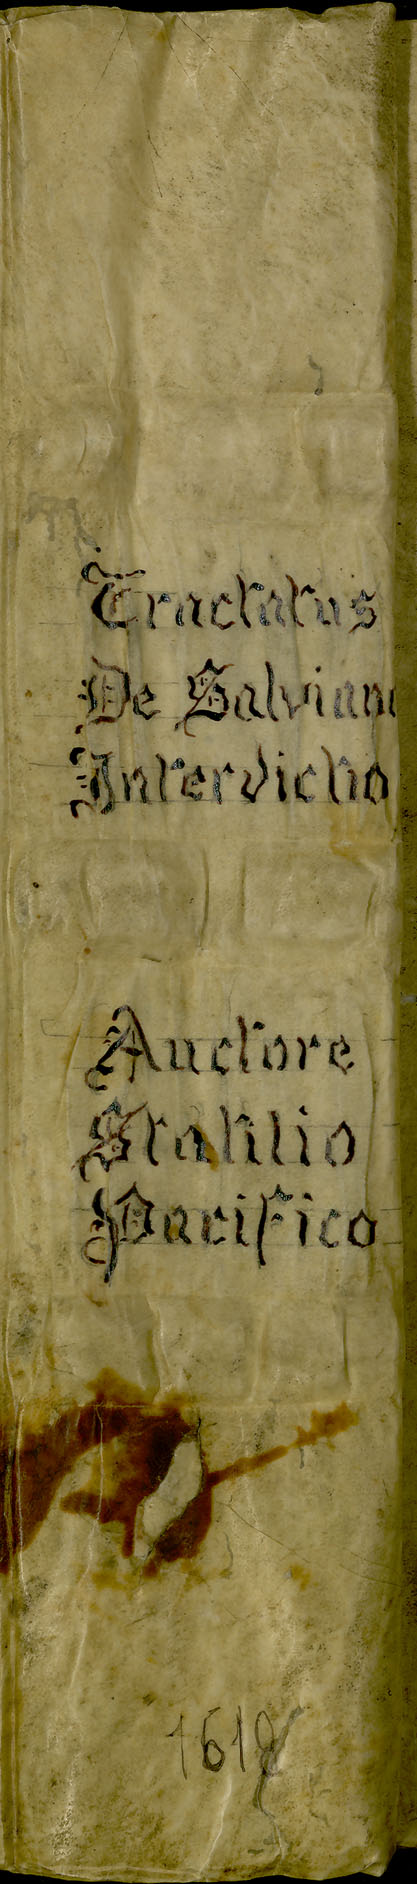 Tractatus
De Salviano
Interdicto
Auctore
Statilio
Pacifico
1618